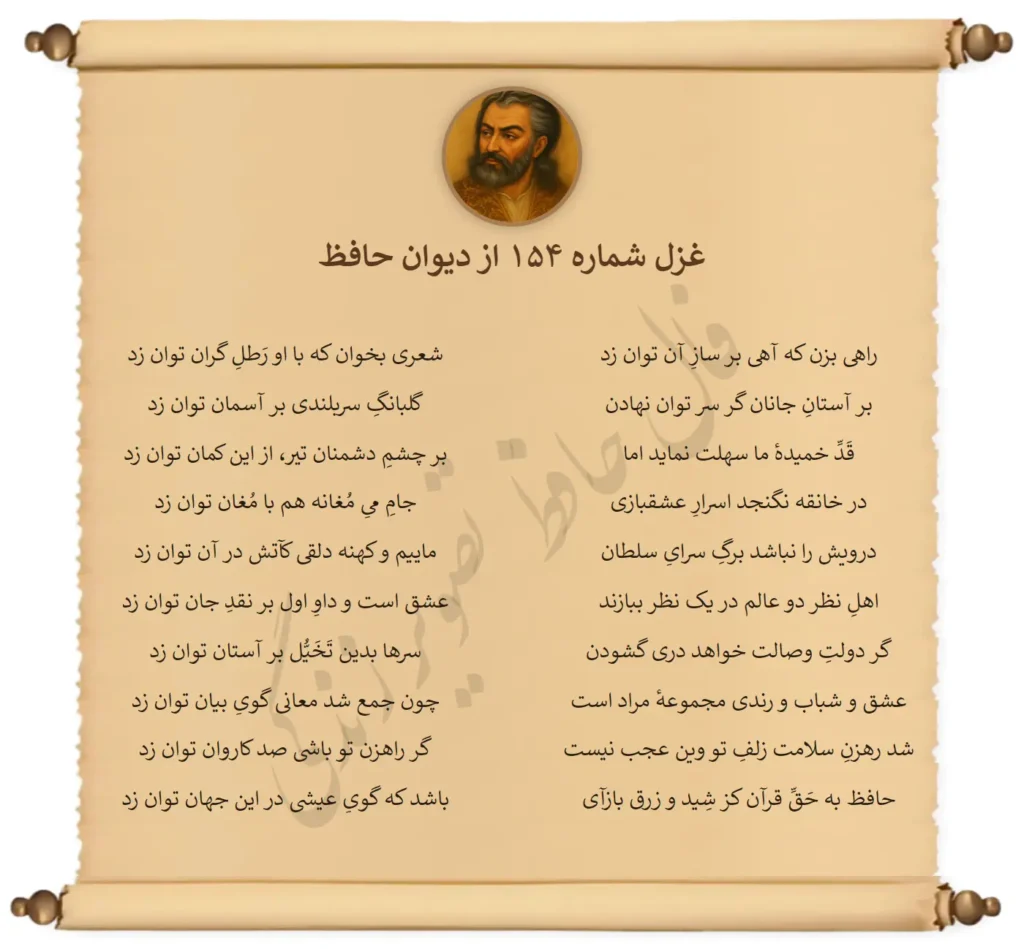 غزل شماره ۱۵۴ از دیوان حافظ
راهی بزن که آهی بر سازِ آن توان زد
شعری بخوان که با او رَطلِ گران توان زد
بر آستانِ جانان گر سر توان نهادن
گلبانگِ سربلندی بر آسمان توان زد
قَدِّ خمیدهٔ ما سهلت نماید اما
بر چشمِ دشمنان تیر، از این کمان توان زد
در خانقه نگنجد اسرارِ عشقبازی
جامِ میِ مُغانه هم با مُغان توان زد
درویش را نباشد برگِ سرایِ سلطان
ماییم و کهنه دلقی کآتش در آن توان زد
اهلِ نظر دو عالم در یک نظر ببازند
عشق است و داوِ اول بر نقدِ جان توان زد
گر دولتِ وصالت خواهد دری گشودن
سرها بدین تَخَیُّل بر آستان توان زد
عشق و شباب و رندی مجموعهٔ مراد است
چون جمع شد معانی گویِ بیان توان زد
شد رهزنِ سلامت زلفِ تو وین عجب نیست
گر راهزن تو باشی صد کاروان توان زد
حافظ به حَقِّ قرآن کز شِید و زرق بازآی
باشد که گویِ عیشی در این جهان توان زد
فال حافظ تصویر زندگی